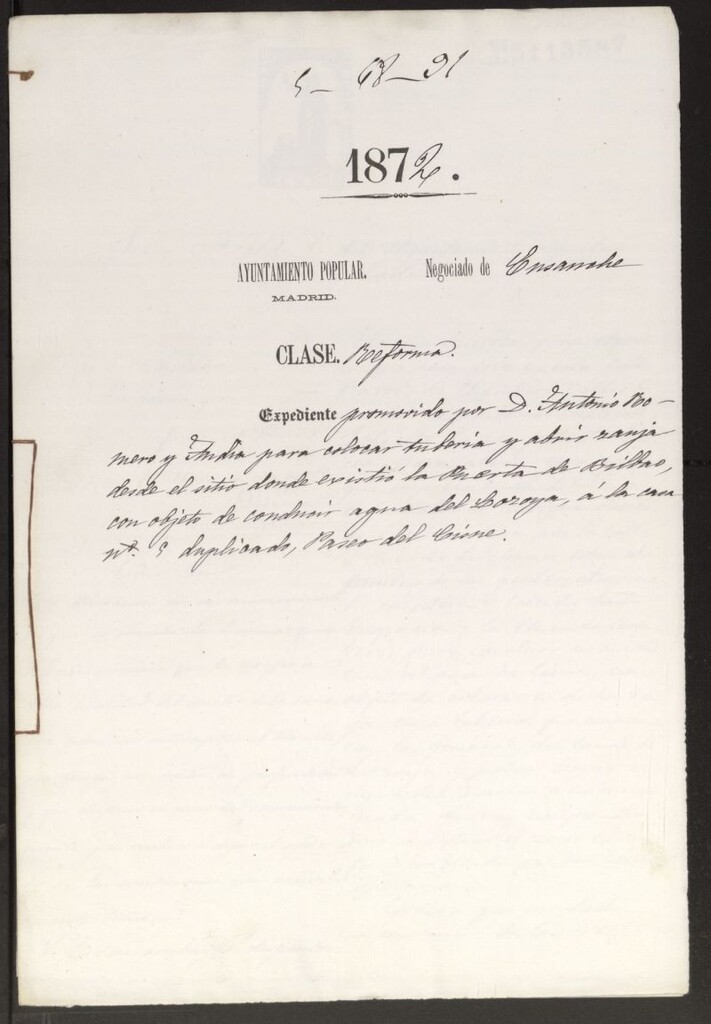 5-68-91
1872.
AYUNTAMIENTO POPULAR. Negociado de Ensanche
MADRID.
CLASE. Reforma.
Expediente promovido por D. Antonio Ro-
mero y Andia para colocar tuberia y abrir zanja
desde el sitio donde existió la Puerta de Bilbao,
con objeto de conducir agua del Lozoya, á la casa
nº. 5 duplicado, Paseo del Cisne.